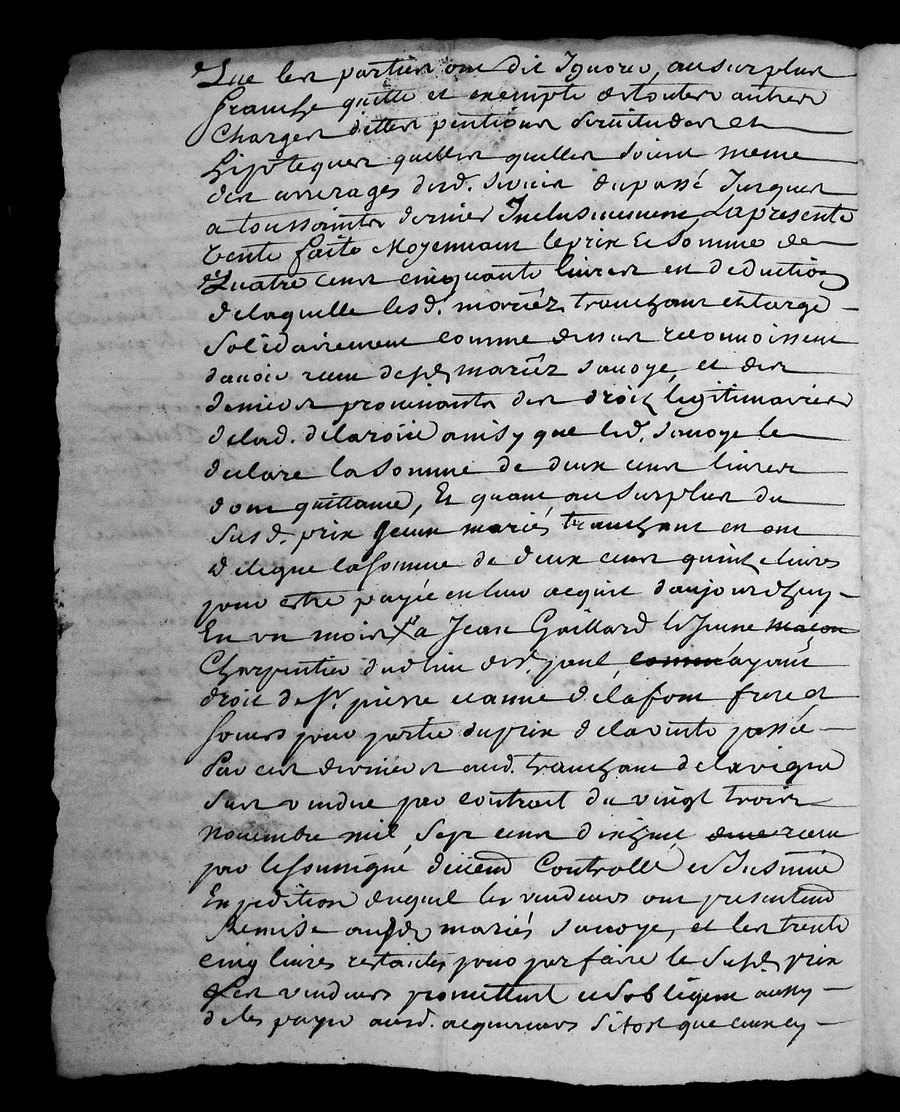 Que les parties ont dit Ignorer, au surplus
franche quitte et exempte de toutes autres
Charges dettes pentions servitudes et
hipoteques quelles quelles soient meme
des arrerages dud. servis du passé Jusques
a toussaints dernier Inclusivement, La presente
vente faite Moyennant le prix et Somme de
Quatre cens cinquante livres en deduction
de laquelle lesd. mariéz tranchant et targe
Solidairement comme dessus reconnoissent
davoir receu desd. mariéz savoye, et des
deniers provenants des droits legitimaires
de lad. delaroire ainsy que led. savoye le
declare la somme de deux cens livres
dont quittance, Et quant au surplus du
susd. prix Iceux mariés tranchant en ont
delegué la somme de deux cens quinze livres
pour estre payée en leur acquit daujourdhuy
En un mois a Jean Gaillard le Jeune macon
Charpentier dud lieu de st. paul, comme ayant
droit de Sr. pierre et anne de lafont frere et
soeurs pour partie du prix de la vente passée
Par ces derniers aud. tranchant de la vigne
sus vendue par contrat du vingt trois
novembre mil sept cens dixhuit, receu
par le soussigné, duemt. Controllé et Insinué
Expedition duquel les vendeurs ont presentemt.
Remise auxd. mariés savoye, et les trente
cinq livres restantes pour parfaire le susd. prix
les vendeurs promettent et sobligent aussy
de les payer ausd. acquereurs sitost que ceux cy